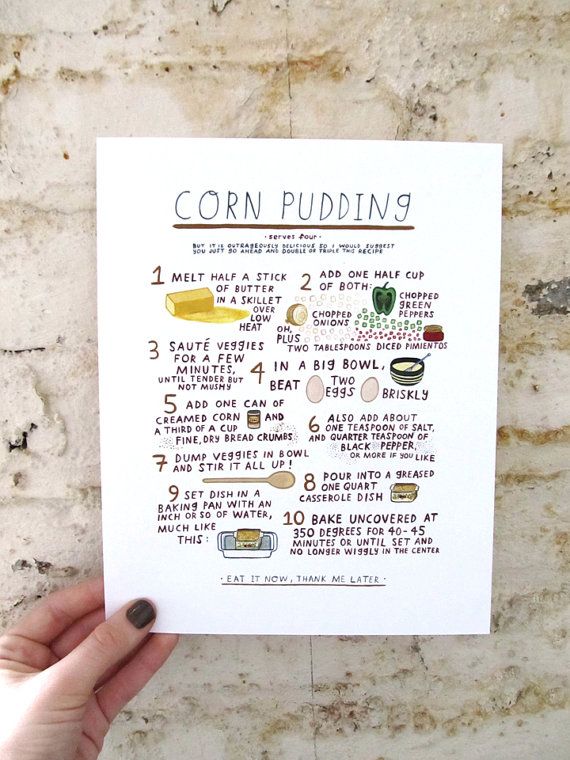 CORN PUDDING
· serves four ·
BUT IT IS OUTRAGEOUSLY DELICIOUS SO I WOULD SUGGEST
YOU JUST GO AHEAD AND DOUBLE OR TRIPLE THIS RECIPE
1 MELT HALF A STICK
OF BUTTER
IN A SKILLET
OVER
LOW
HEAT
2 ADD ONE HALF CUP
OF BOTH:
CHOPPED
GREEN
PEPPERS
CHOPPED
ONIONS
OH,
PLUS
TWO TABLESPOONS DICED PIMIENTOS
3 SAUTÉ VEGGIES
FOR A FEW
MINUTES,
UNTIL TENDER BUT
NOT MUSHY
4 IN A BIG BOWL,
BEAT TWO
EGGS BRISKLY
5 ADD ONE CAN OF
CREAMED CORN AND
A THIRD OF A CUP
FINE, DRY BREAD CRUMBS
6 ALSO ADD ABOUT
ONE TEASPOON OF SALT,
AND QUARTER TEASPOON OF
BLACK PEPPER,
OR MORE IF YOU LIKE
7 DUMP VEGGIES IN BOWL
AND STIR IT ALL UP!
8 POUR INTO A GREASED
ONE QUART
CASSEROLE DISH
9 SET DISH IN A
BAKING PAN WITH AN
INCH OR SO OF WATER,
MUCH LIKE
THIS:
10 BAKE UNCOVERED AT
350 DEGREES FOR 40-45
MINUTES OR UNTIL SET AND
NO LONGER WIGGLY IN THE CENTER
· EAT IT NOW, THANK ME LATER ·